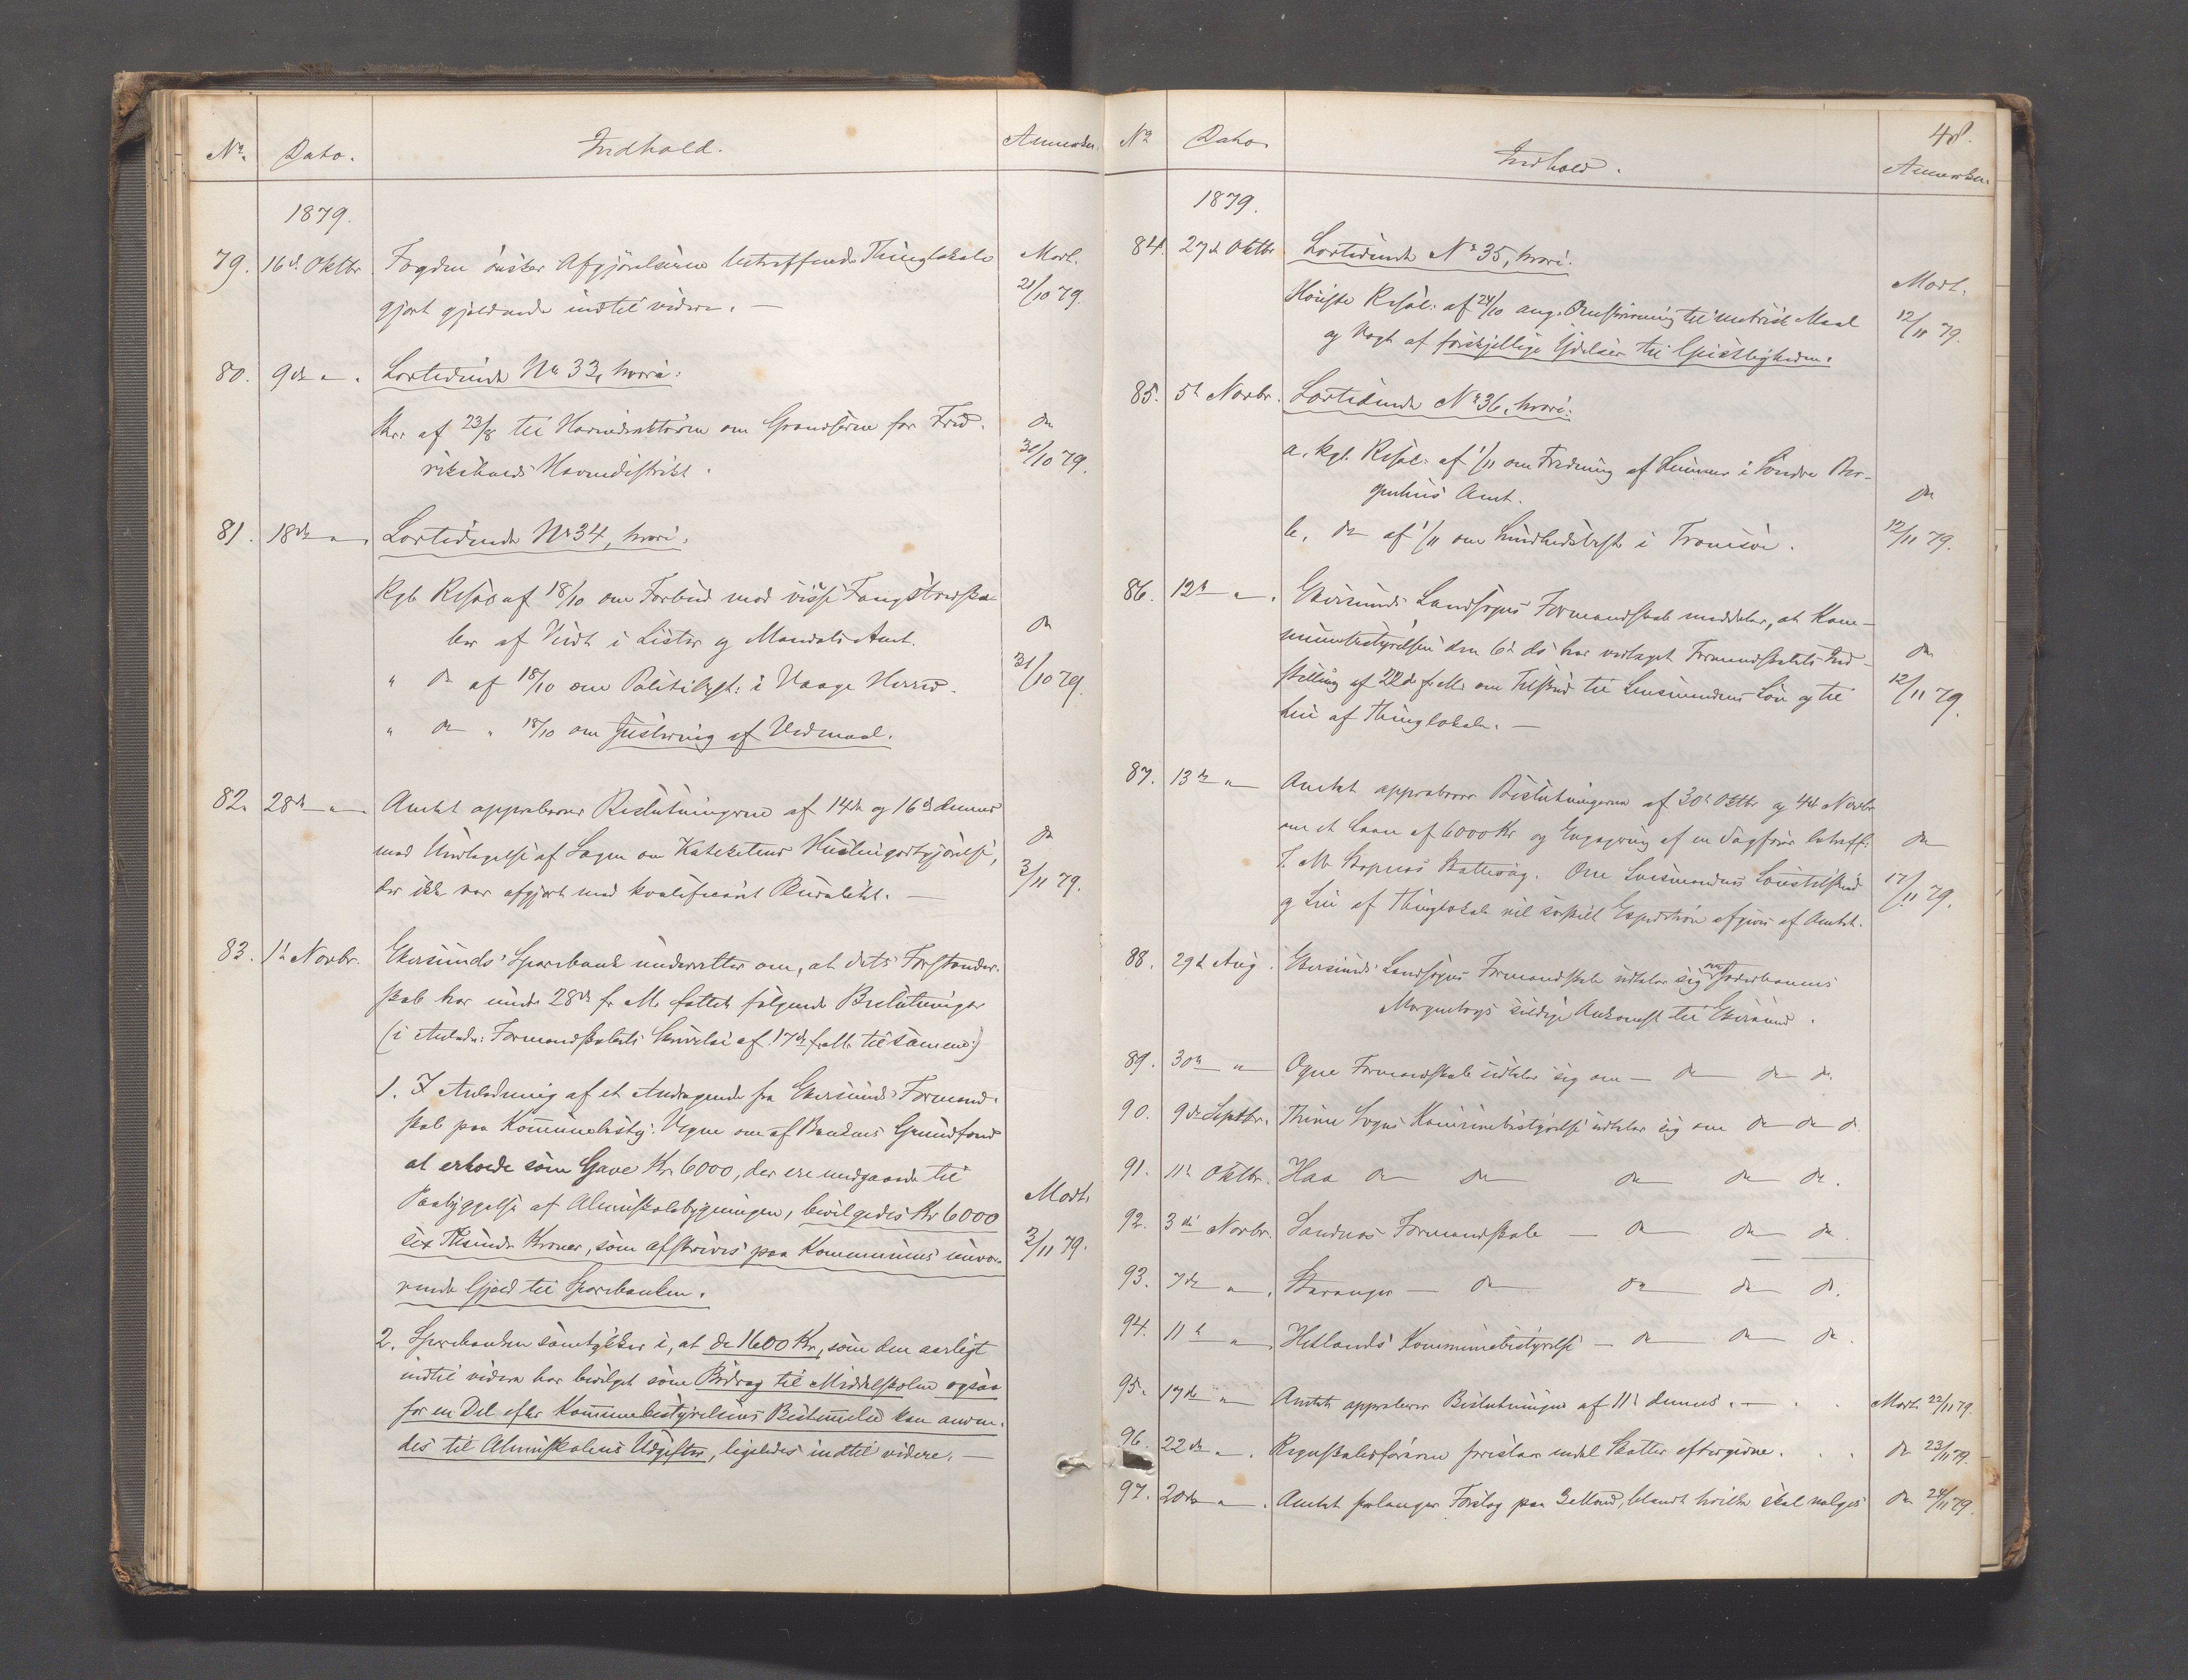 No. Dato. Indhold. Anmerkn.
1879.
79. 16de Oktbr Fogden ønsker Afgjørelserne betræffende Thinglokale Modt.
gjort gjældende indtil videre. — 21/10 79.
80. 9de " Lovtidende No 33, hvori: do
Skr af 23/8 til Havnedirektøren om Grændserne for Fred-
rikshalds Havnedistrikt. 30/10 79.
81. 18de " Lovtidende No 34, hvori:
Kgl. Resol. af 18/10 om Forbud mod visse Fangstredska- do
ber af Vidt i Lister og Mandals Amt. 31/10 79.
" do af 18/10 om Politibest: i Vaage Herred.
" do " 18/10 om Justering af Vedmaal.
82. 28de " Amtet approberer Beslutningerne af 14de og 16de dennes do
med Undtagelse af Sagen om Kateketens Huslejegodtgjørelse,
der ikke var afgjort med kvalificeret Pluralitet. — 3/11 79.
83. 1ste Novbr. Ekersunds Sparebank underretter om, at dets Forstander-
skab har under 28de f. M. fattet følgende Beslutninger
(i Anledn: Formandskabets Skrivelse af 17de f. M. til samme:)
1. I Anledning af et Andragende fra Ekersunds Formand-
skab paa Kommunebesty: Vegne om af Bankens Grundfond
at erholde som Gave Kr. 6000, der ere medgaaede til
Paabyggelse af Almueskolebygningen, bevilgedes Kr 6000 Modt.
sex Tusinde Kroner, som afskrives paa Kommunens nuvæ- 3/11 79.
rende Gjæld til Sparebanken.
2. Sparebanken samtykker i, at de 1600 Kr, som den aarligt
indtil videre har bevilget som Bidrag til Middelskolen ogsaa
for en Del efter Kommunebestyrelsens Bestemmelse kan anven-
des til Almueskolens Udgifter, ligeledes indtil videre. —
48.
No Dato Indhold. Anmerkn.
1879.
84. 27de Oktbr Lovtidende No 35, hvori: Modt.
Høieste Resol: af 24/10 ang. Omskrivning til metrisk Maal 12/11 79.
og Vægt af forskjellige Ydelser til Geistligheden.
85. 5te Novbr. Lovtidende No 36, hvori:
a, Kgl. Resol. af 1/11 om Fredning af Hummer i Søndre Ber-
genhus Amt. do
b, do af 1/11 om Sundhedsbest i Tromsøe. 12/11 79.
86. 12te " Ekersunds Landsogns Formandskab meddeler, at Kom-
munebestyrelsen den 6te ds har vedtaget Formandskabets Ind- do
stilling af 22de f. M. om Tilskud til Lensmandens Løn og til 12/11 79.
Leie af Thinglokale. —
87. 13de " Amtet approberer Beslutningerne af 30te Oktbr og 4de Novbr
om et Laan af 6000 Kr og Engagering af en Sagfører betræff: do
J. M. Skapnes Skattesag. Om Lensmandens Lønstilskud 17/11 79.
og Leie af Thinglokale vil særskilt Expedition afgives af Amtet.
88. 29de Aug. Ekersunds Landsogns Formandskab udtaler sig om Jæderbanens
Morgentogs sildige Ankomst til Ekersund.
89. 30te " Ogne Formandskab udtaler sig om — do do do.
90. 9de Septbr. Thime Sogns Kommunebestyrelse udtaler sig om do do do.
91. 11te Oktbr. Haa do do do do do.
92. 3die Novbr. Sandnæs Formandskab — do do do.
93. 7de " Stavanger — do do do do.
94. 11te " Hetlands Kommunebestyrelse — do do do.
95. 17de " Amtet approberer Beslutninger af 11te dennes. — Modt. 22/11 79.
96. 22de " Regnskabsføreren foreslaar endel Skatter eftergivne. do 23/11 79.
97. 20de " Amtet forlanger Forslag paa 3 Mænd, blandt hvilke skal vælges do 24/11 79.